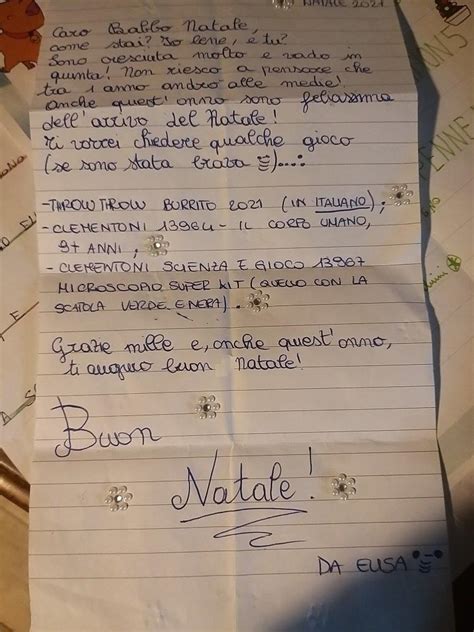 NATALE 2021
Caro Babbo Natale,
come stai? Io bene, e tu?
Sono cresciuta molto e vado in
quinta! Non riesco a pensare che
tra 1 anno andrò alle medie!
Anche quest'anno sono felicissima
dell'arrivo del Natale!
Ti vorrei chiedere qualche gioco
(se sono stata brava)...:
-THROW THROW BURRITO 2021 (IN ITALIANO);
-CLEMENTONI 13964 - IL CORPO UMANO,
9+ ANNI;
- CLEMENTONI SCIENZA E GIOCO 13967
MICROSCOPIO SUPER KIT (QUELLO CON LA
SCATOLA VERDE E NERA).
Grazie mille e, anche quest'anno,
ti auguro buon Natale!
Buon
Natale!
DA ELISA